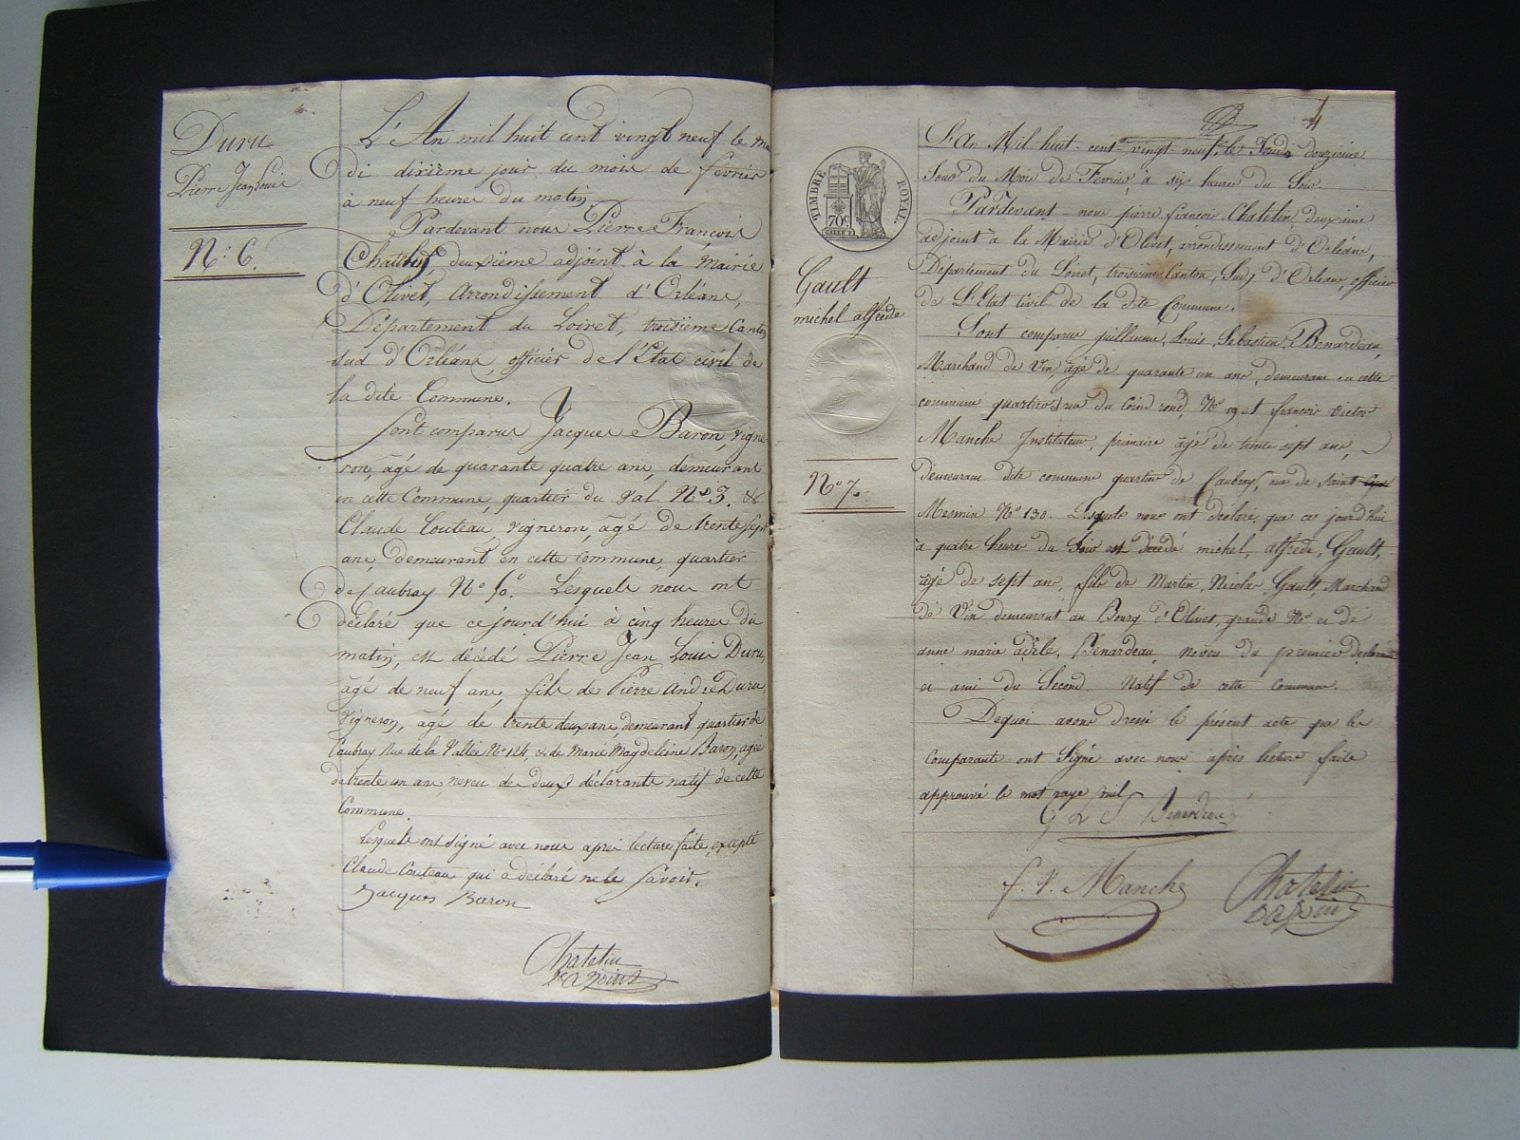 Duru
Pierre Jean Louis
N.º 6.
L'An mil huit cent vingt neuf le mar
di dixième jour du mois de février
à neuf heures du matin,
Pardevant nous Pierre François
Chatelin, deuxième adjoint à la Mairie
d'Olivet, Arrondissement d'Orléans,
Département du Loiret, troisième Canton
sud d'Orléans, officier de l'État civil de
la dite Commune.
Sont comparus Jacques Baron, vigne-
ron, âgé de quarante quatre ans, demeurant
en cette Commune, quartier du Val Nº 3. &
Claude Couteau, vigneron, âgé de trente sept
ans, demeurant en cette commune, quartier
de Caubray Nº 50. Lesquels nous ont
déclaré que ce jourd'hui à cinq heures du
matin, est décédé Pierre Jean Louis Duru,
âgé de neuf ans, fils de Pierre André Duru,
vigneron, âgé de trente deux ans, demeurant quartier de
Caubray Rue de la Vallée Nº 124, & de Marie Magdeleine Baron, agée
de trente un ans, neveu des deux déclarants natif de cette
Commune.
Lesquels ont signé avec nous après lecture faite, excepté
Claude Couteau qui a déclaré ne le savoir.
Jacques Baron
Chatelin
2e adjoint
4
TIMBRE ROYAL.
70c
Gault
michel alfrède
Nº 7.
L'An Mil huit cent vingt neuf, le Jeudi douzième
Jour du Mois de Février, à six heures du Soir.
Pardevant nous pierre françois Chatelin, deuxième
adjoint à la Mairie d'Olivet, arrondissement d'Orléans,
Département du Loiret, troisième Canton, Sud, d'Orléans, officier
de L'Etat Civil de la dite Commune.
Sont comparus guillaume, Louis, Sebastien, Benardeau,
Marchand de Vin, âgé de quarante un ans, demeurant en cette
commune quartier et rue du Coin rond, Nº 19 et françois victor
Manche Instituteur, primaire âgé de trente sept ans,
demeurant dite commune quartier de Caubray, rue de Saint
Mesmin Nº 130. Lesquels nous ont déclaré, que ce jourd'hui
à quatre heures du Soir est décédé michel, alfrède, Gault,
agé de sept ans, fils de Martin, Nicolas, Gault, Marchand
de Vin demeurant au Bourg d'Olivet, grande Rue et de
anne marie adèle, Benardeau, neveu du premier déclarant
et ami du Second. Natif de cette Commune.
Dequoi avons dressé le présent acte que les
Comparants ont Signé avec nous après lecture faite
approuvé le mot rayé nul
G L S Benardeau
f. V. Manche
Chatelin
2e adjoint